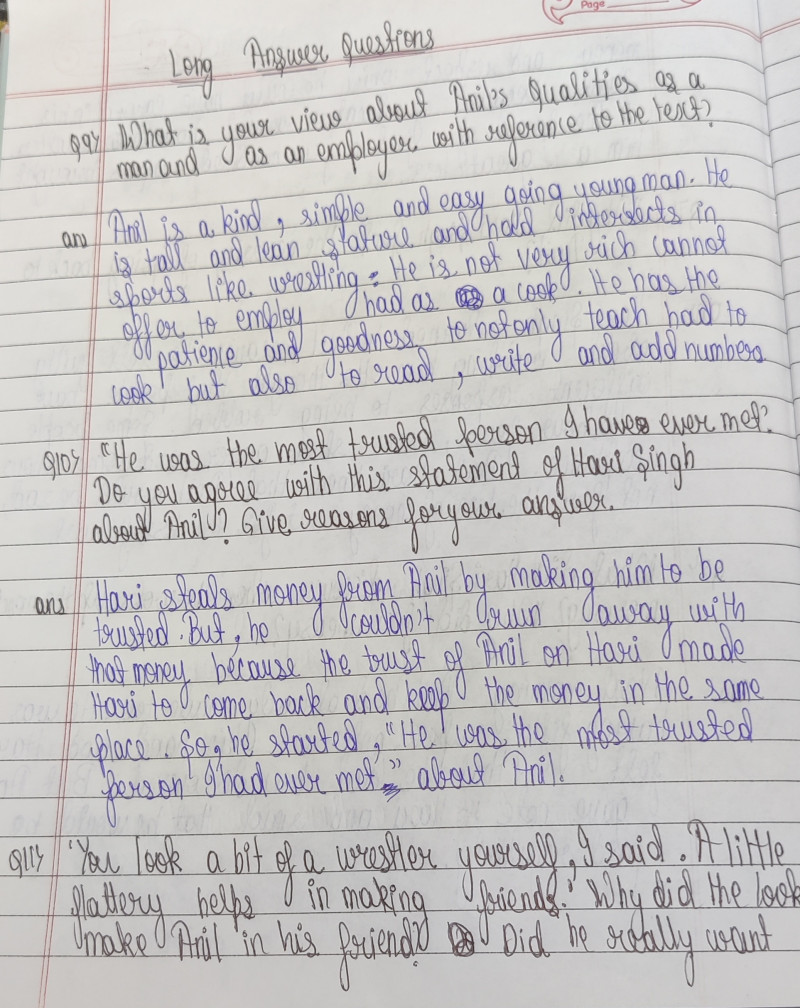 Page
Long Answer Questions
Q9} What is your view about Anil's Qualities as a
man and as an employer with reference to the text?
ans Anil is a kind, simple and easy going young man. He
is tall and lean stature and hold intersects in
sports like wrestling. He is not very rich cannot
offer to employ had as a cook. He has the
patience and goodness to not only teach had to
cook but also to read, write and add numbers
Q10} "He was the most trusted person I have ever met.
Do you agree with this statement of Hari Singh
about Anil? Give reasons for your answer.
ans Hari steals money from Anil by making him to be
trusted. But, he couldn't run away with
that money because the trust of Anil on Hari made
Hari to come back and keep the money in the same
place. So, he started, "He was the most trusted
person I had ever met" about Anil.
Q11} 'You look a bit of a wrestler yourself, I said. A little
flattery helps in making friends.' Why did the look
make Anil in his friend? Did he really want